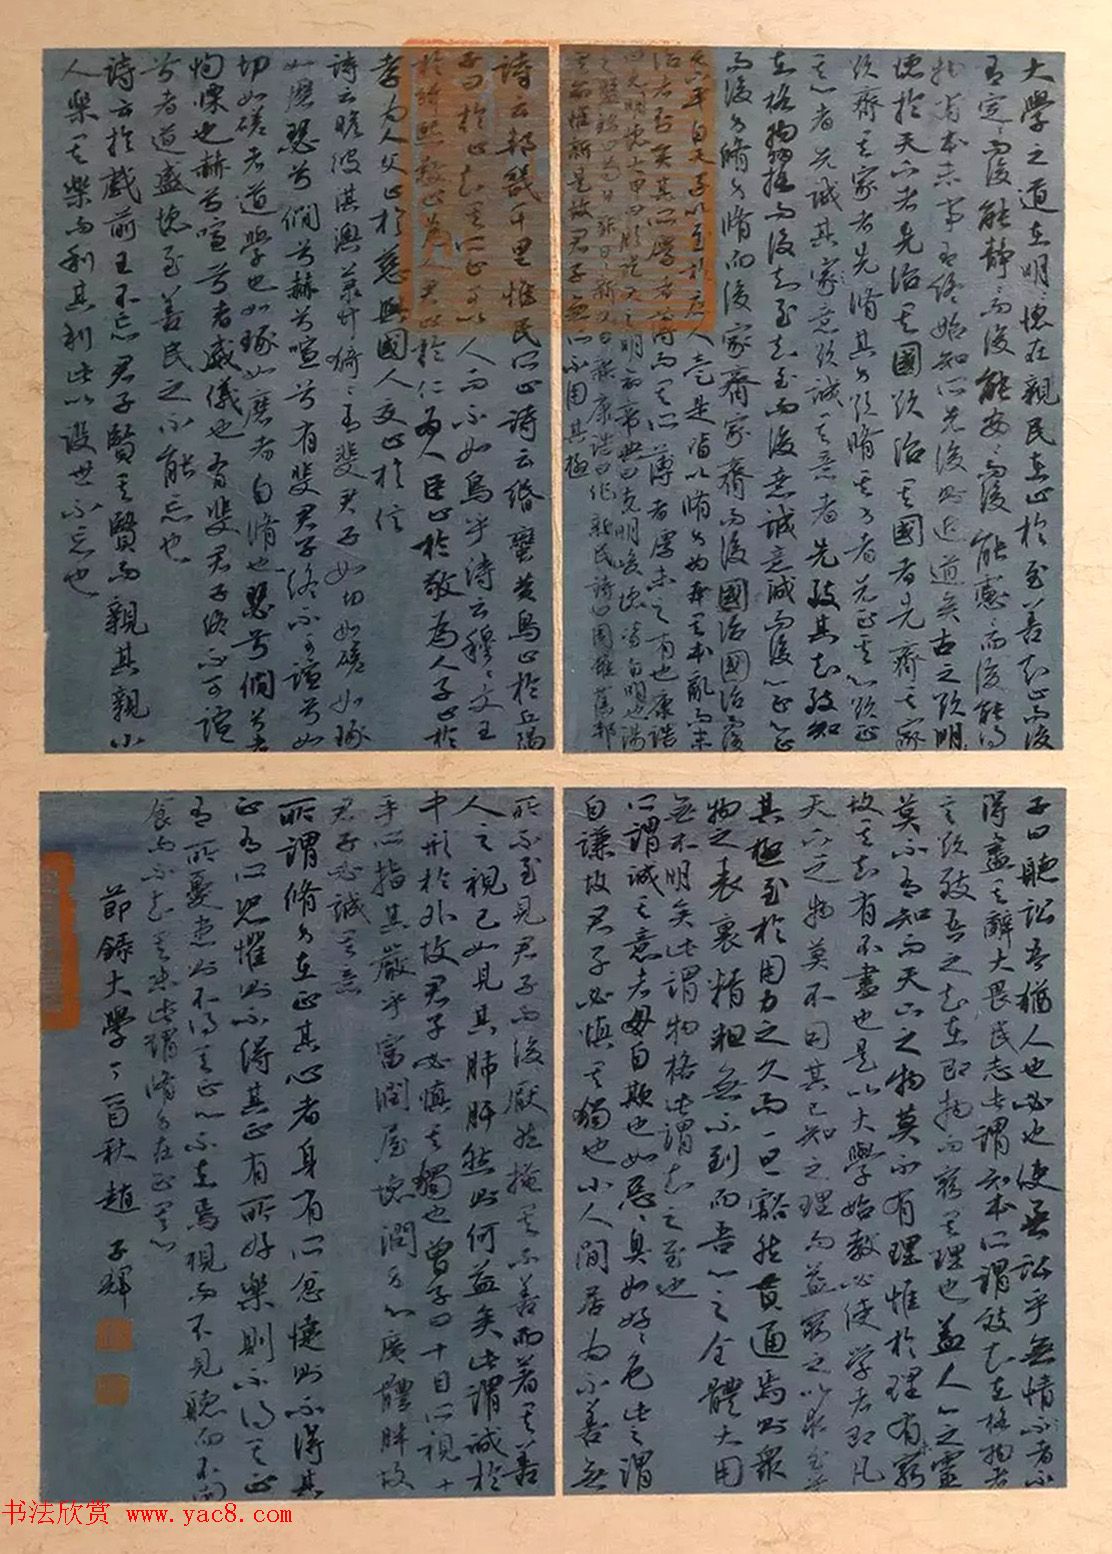 大學之道在明明德在親民在止於至善知止而後
有定定而後能靜靜而後能安安而後能慮慮而後能得
物有本末事有終始知所先後則近道矣古之欲明明
德於天下者先治其國欲治其國者先齊其家
欲齊其家者先脩其身欲脩其身者先正其心欲正
其心者先誠其意欲誠其意者先致其知致知
在格物物格而後知至知至而後意誠意誠而後心正心正
而後身脩身脩而後家齊家齊而後國治國治而後
天下平自天子以至於庶人壹是皆以脩身為本其本亂而末
治者否矣其所厚者薄而其所薄者厚未之有也康誥
曰克明德大甲曰顧諟天之明命帝典曰克明峻德皆自明也湯
之盤銘曰苟日新日日新又日新康誥曰作新民詩曰周雖舊邦
其命惟新是故君子無所不用其極
詩云邦畿千里惟民所止詩云緡蠻黃鳥止於丘隅
子曰於止知其所止可以人而不如鳥乎詩云穆穆文王
於緝熙敬止為人君止於仁為人臣止於敬為人子止於
孝為人父止於慈與國人交止於信
詩云瞻彼淇澳菉竹猗猗有斐君子如切如磋如琢
如磨瑟兮僩兮赫兮喧兮有斐君子終不可諠兮如
切如磋者道學也如琢如磨者自脩也瑟兮僩兮者
恂慄也赫兮喧兮者威儀也有斐君子終不可諠
兮者道盛德至善民之不能忘也
詩云於戲前王不忘君子賢其賢而親其親小
人樂其樂而利其利此以沒世不忘也
子曰聽訟吾猶人也必也使無訟乎無情者不
得盡其辭大畏民志此謂知本所謂致知在格物者
言欲致吾之知在即物而窮其理也蓋人心之靈
莫不有知而天下之物莫不有理惟於理有未窮
故其知有不盡也是以大學始教必使學者即凡
天下之物莫不因其已知之理而益窮之以求至乎
其極至於用力之久而一旦豁然貫通焉則眾
物之表裏精粗無不到而吾心之全體大用
無不明矣此謂物格此謂知之至也
所謂誠其意者毋自欺也如惡惡臭如好好色此之謂
自謙故君子必慎其獨也小人閒居為不善無
所不至見君子而後厭然掩其不善而著其善
人之視己如見其肺肝然則何益矣此謂誠於
中形於外故君子必慎其獨也曾子曰十目所視十
手所指其嚴乎富潤屋德潤身心廣體胖故
君子必誠其意
所謂脩身在正其心者身有所忿懥則不得其
正有所恐懼則不得其正有所好樂則不得其正
有所憂患則不得其正心不在焉視而不見聽而不聞
食而不知其味此謂脩身在正其心
節錄大學丁酉秋趙子輝
书法欣赏 www.yac8.com